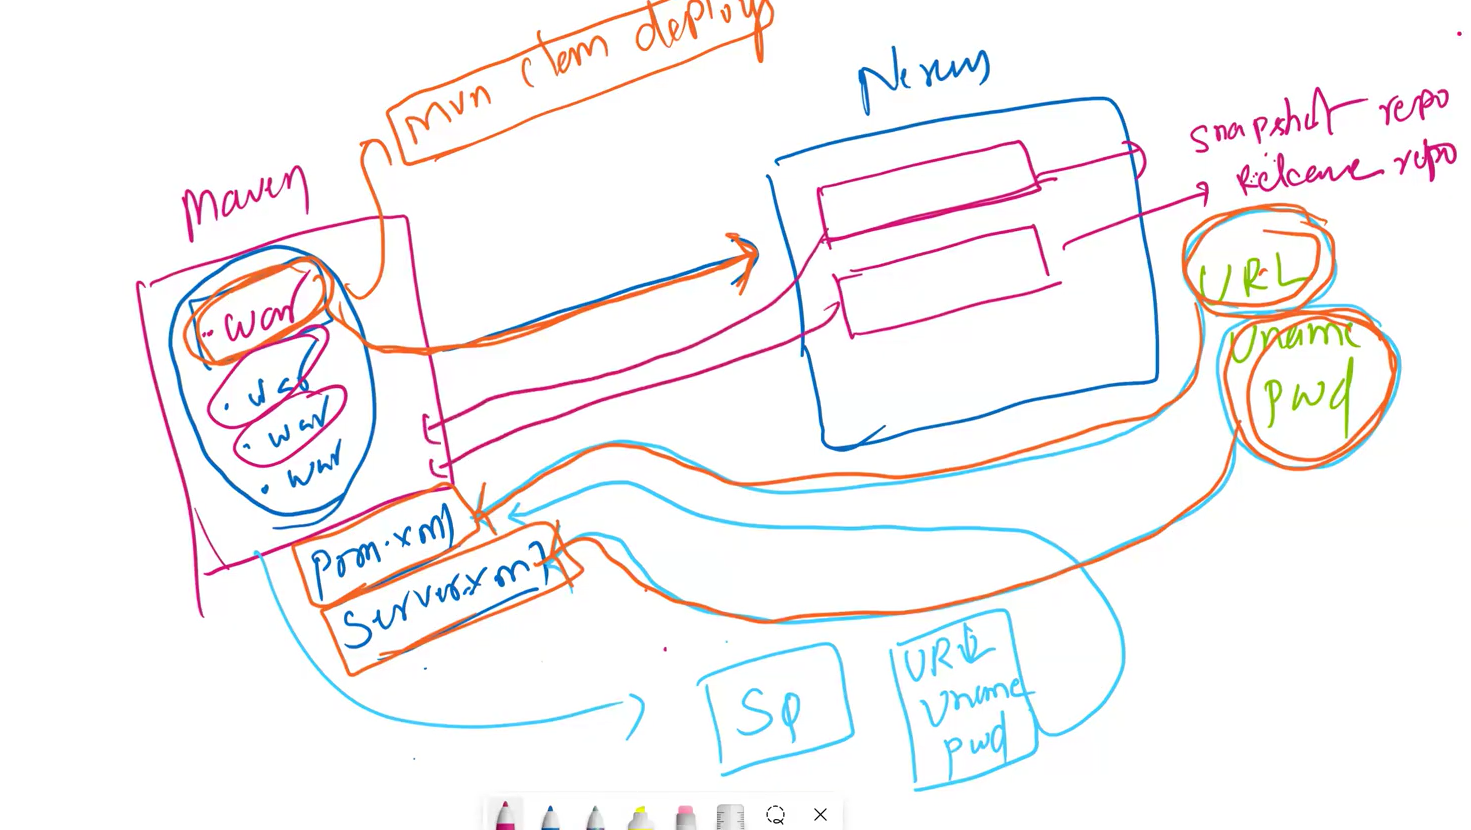 mvn clean deploy
Nexus
snapshot repo
release repo
Maven
war
war
war
war
URL
Uname
pwd
pom.xml
Server.xml
SQ
URL
Uname
pwd